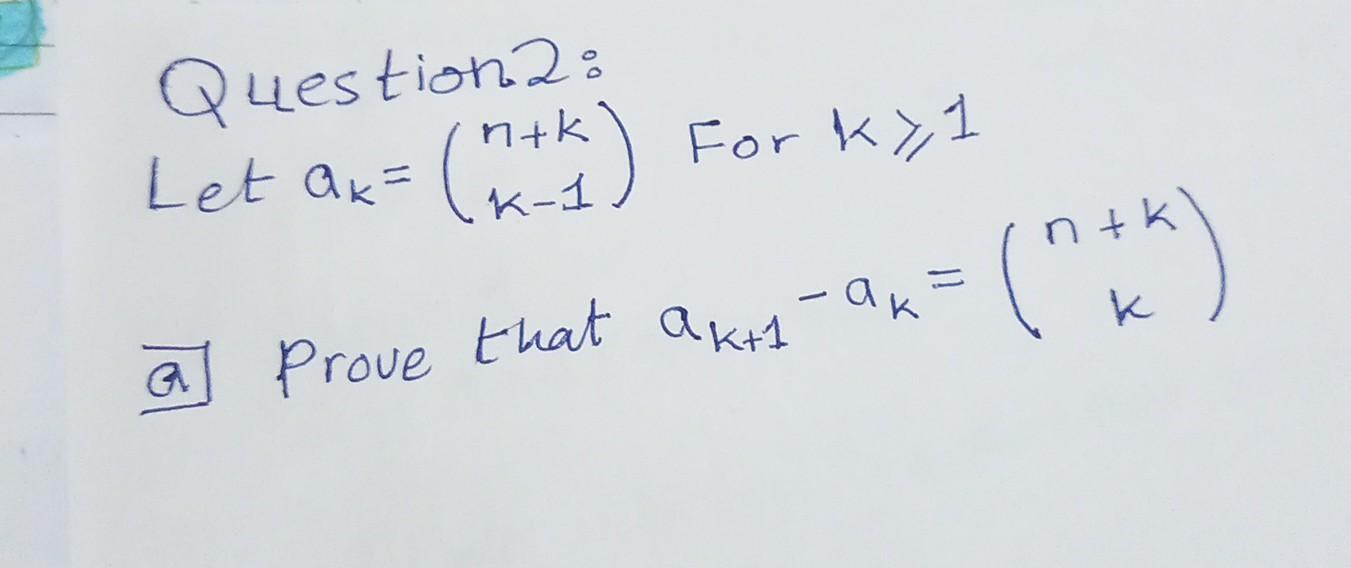 Question 2:
Let aₖ = (n+k / k-1) For k ⩾ 1
a] Prove that aₖ₊₁ - aₖ = (n+k / k)